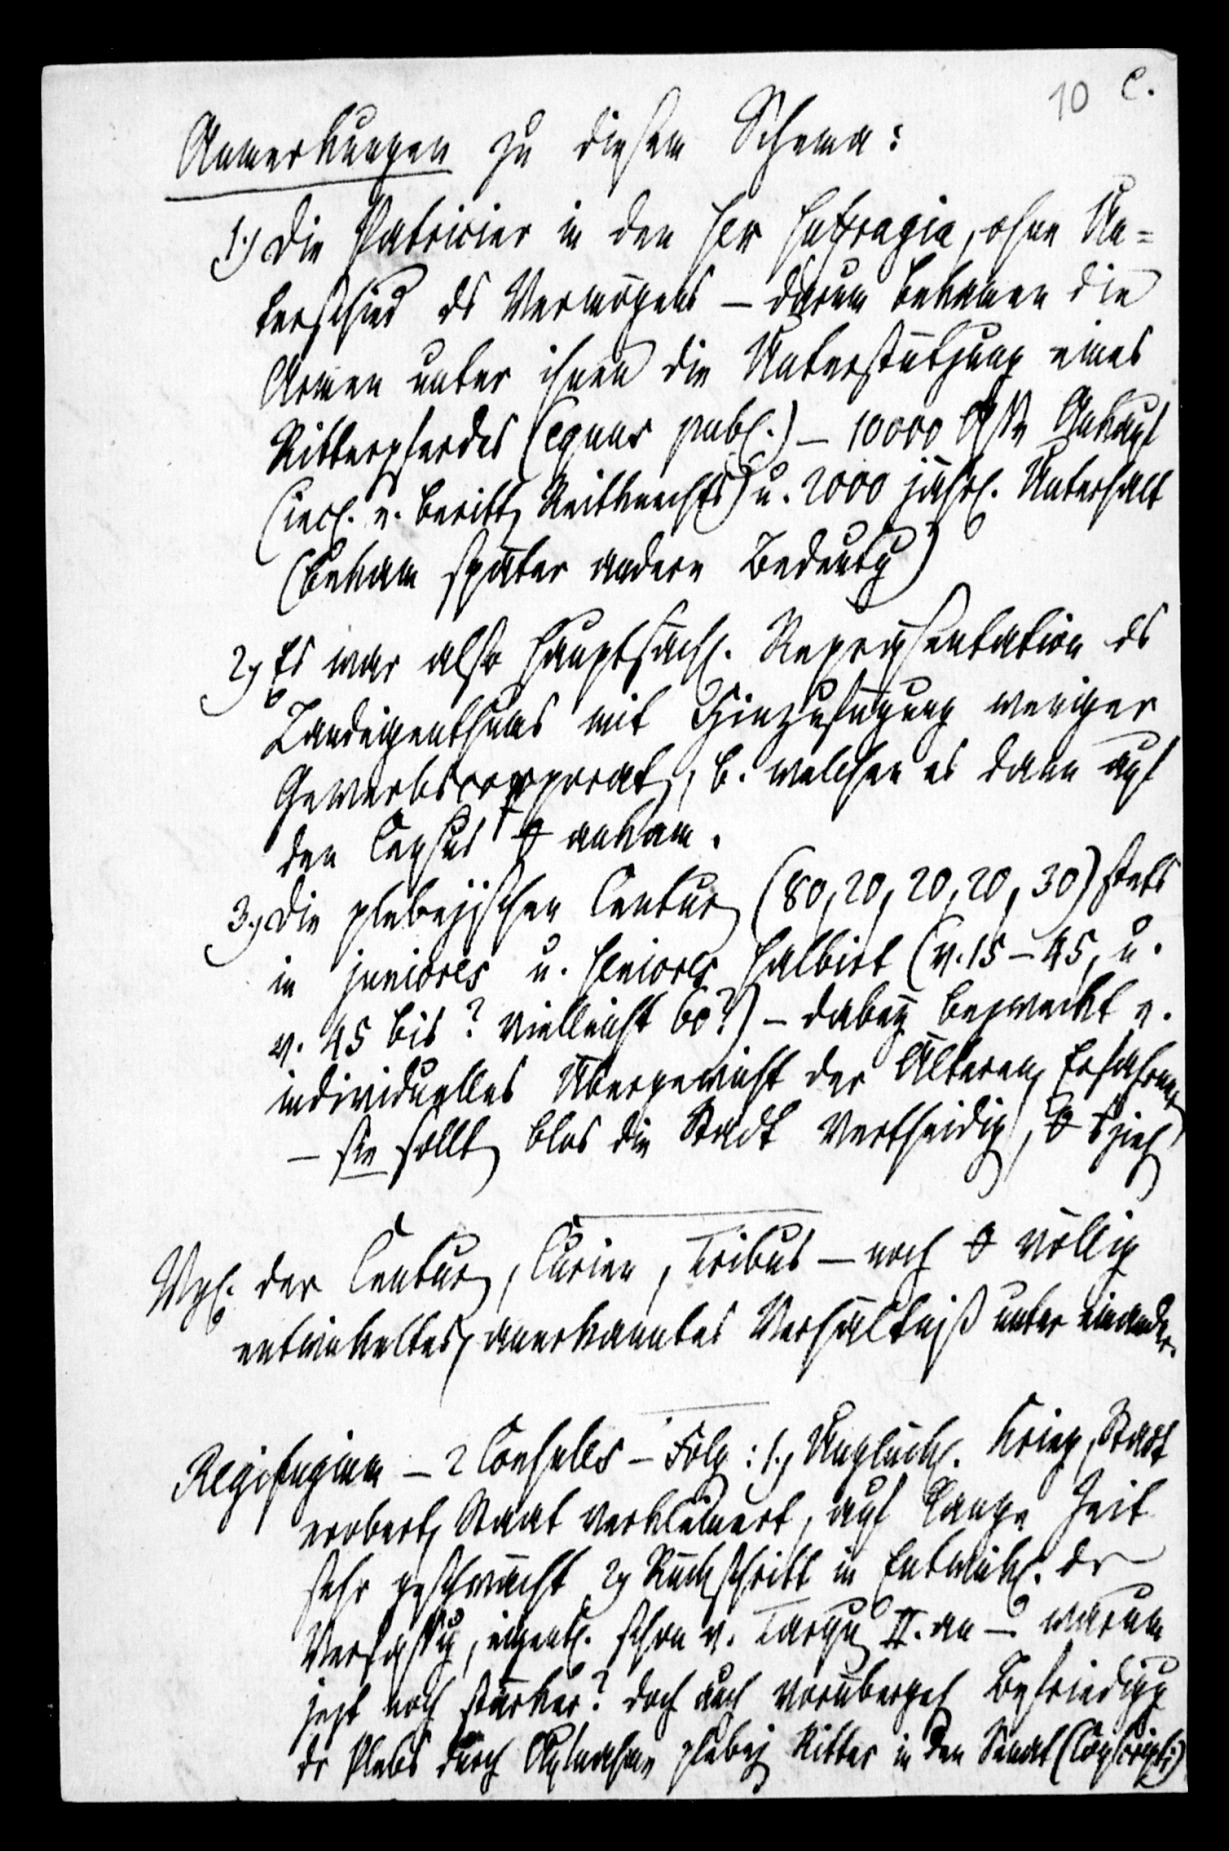 10 e.
Anmerkungen zu diesem Schema:
1.) Die Patricier in den sex suffragia, ohne Un=
terschied ds Vermögens – darum bekamen die
Armen unter ihnen die Unterstützung eines
Ritterpferdes (equus publ.) – 10000 Ass Ankauf
(incl. e. beritt Reitknechts) u. 2000 jährl. Unterhalt
(bekam später andere Bedeutg)
2) Es war also hauptsächl. Repräsentation ds
Landeigenthums mit Hinzufügung weniger
Gewerbscorporat, b. welchen es dann auf
den Census ankam.
3.) Die plebejischen Centur (80, 20, 20, 20, 30) stets
in juniores u. seniores halbirt (v. 15 – 45, u.
v. 45 bis? vielleicht 60?) – dabey bezweckt e.
individuelles Übergewicht der Älteren, Erfahrnen
– sie sollt blos die Stadt vertheidig,
Vgl. der Centur, Curien, Tribus – noch völlig
entwickeltes, anerkanntes Verhältniß unter einander.
Regifugium – 2 Consules – Folg: 1., Unglückl. Krieg, Stadt
erobert, Staat verkleinert, auf lange Zeit
sehr geschwächt 2) Rückschritt in Entwickl. dr
Verfassg, eigentl. schon v. Tarqu II. an – warum
jetzt noch stärker? doch auch vorübergeh Befriedigg
dr Plebs durch Aufnahme plebej Ritter in den Senat (Conscripti)